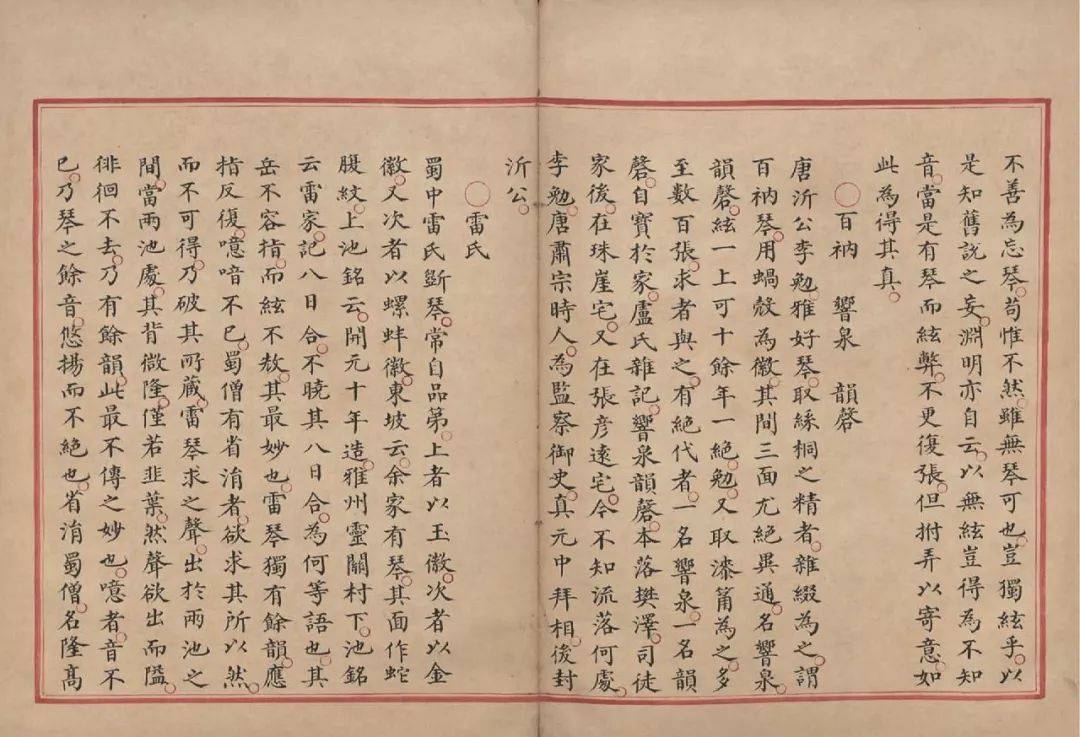 不善為忘琴苟惟不然雖無琴可也豈獨絃乎以
是知舊說之妄淵明亦自云以無絃豈得為不知
音當是有琴而絃弊不更復張但拊弄以寄意如
此為得其真
○百衲 響泉 韻磬
唐沂公李勉雅好琴取絲桐之精者雜綴為之謂
百衲琴用蝸殼為徽其間三面尤絕異通名響泉
韻磬絃一上可十餘年一絕勉又取漆筩為之多
至數百張求者與之有絕代者一名響泉一名韻
磬自寶於家盧氏雜記響泉韻磬本落樊澤司徒
家後在珠崖宅又在張彥遠宅今不知流落何處
李勉唐肅宗時人為監察御史真元中拜相後封
沂公
○雷氏
蜀中雷氏斲琴常自品第上者以玉徽次者以金
徽又次者以螺蚌徽東坡云余家有琴其面作蛇
腹紋上池銘云開元十年造雅州靈關村下池銘
云雷家記八日合不曉其八日合為何等語也其
岳不容指而絃不㪇其最妙也雷琴獨有餘韻應
指反復噫喑不已蜀僧有省涓者欲求其所以然
而不可得乃破其所藏雷琴求之聲出於兩池之
間當兩池處其背微隆僅若韭葉然聲欲出而隘
徘徊不去乃有餘韻此最不傳之妙也噫者音不
已乃琴之餘音悠揚而不絕也省涓蜀僧名隆高